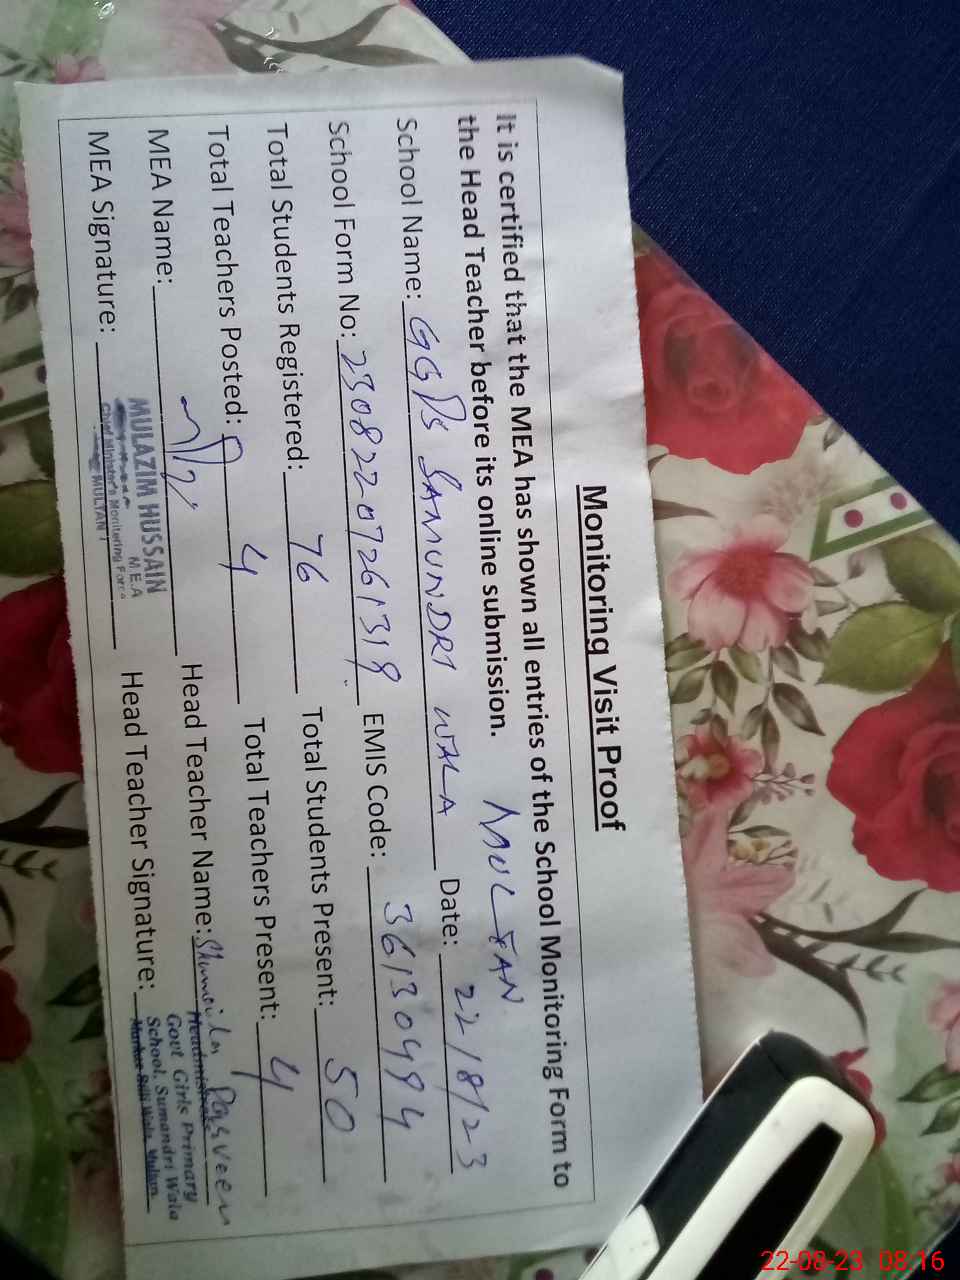 Monitoring Visit Proof
It is certified that the MEA has shown all entries of the School Monitoring Form to
the Head Teacher before its online submission. MULTAN
School Name: GGPS SAMUNDRI WALA Date: 22/8/23
School Form No: 23082207261319 EMIS Code: 36130494
Total Students Registered: 76 Total Students Present: 50
Total Teachers Posted: 4 Total Teachers Present: 4
MEA Name: Head Teacher Name: Shumaila Parveen
MEA Signature: Head Teacher Signature:
MULAZIM HUSSAIN
M.E.A
Chief Minister's Monitoring Force
MULTAN
Headmistress
Govt Girls Primary
School, Sumandri Wala
22-08-23 08:16